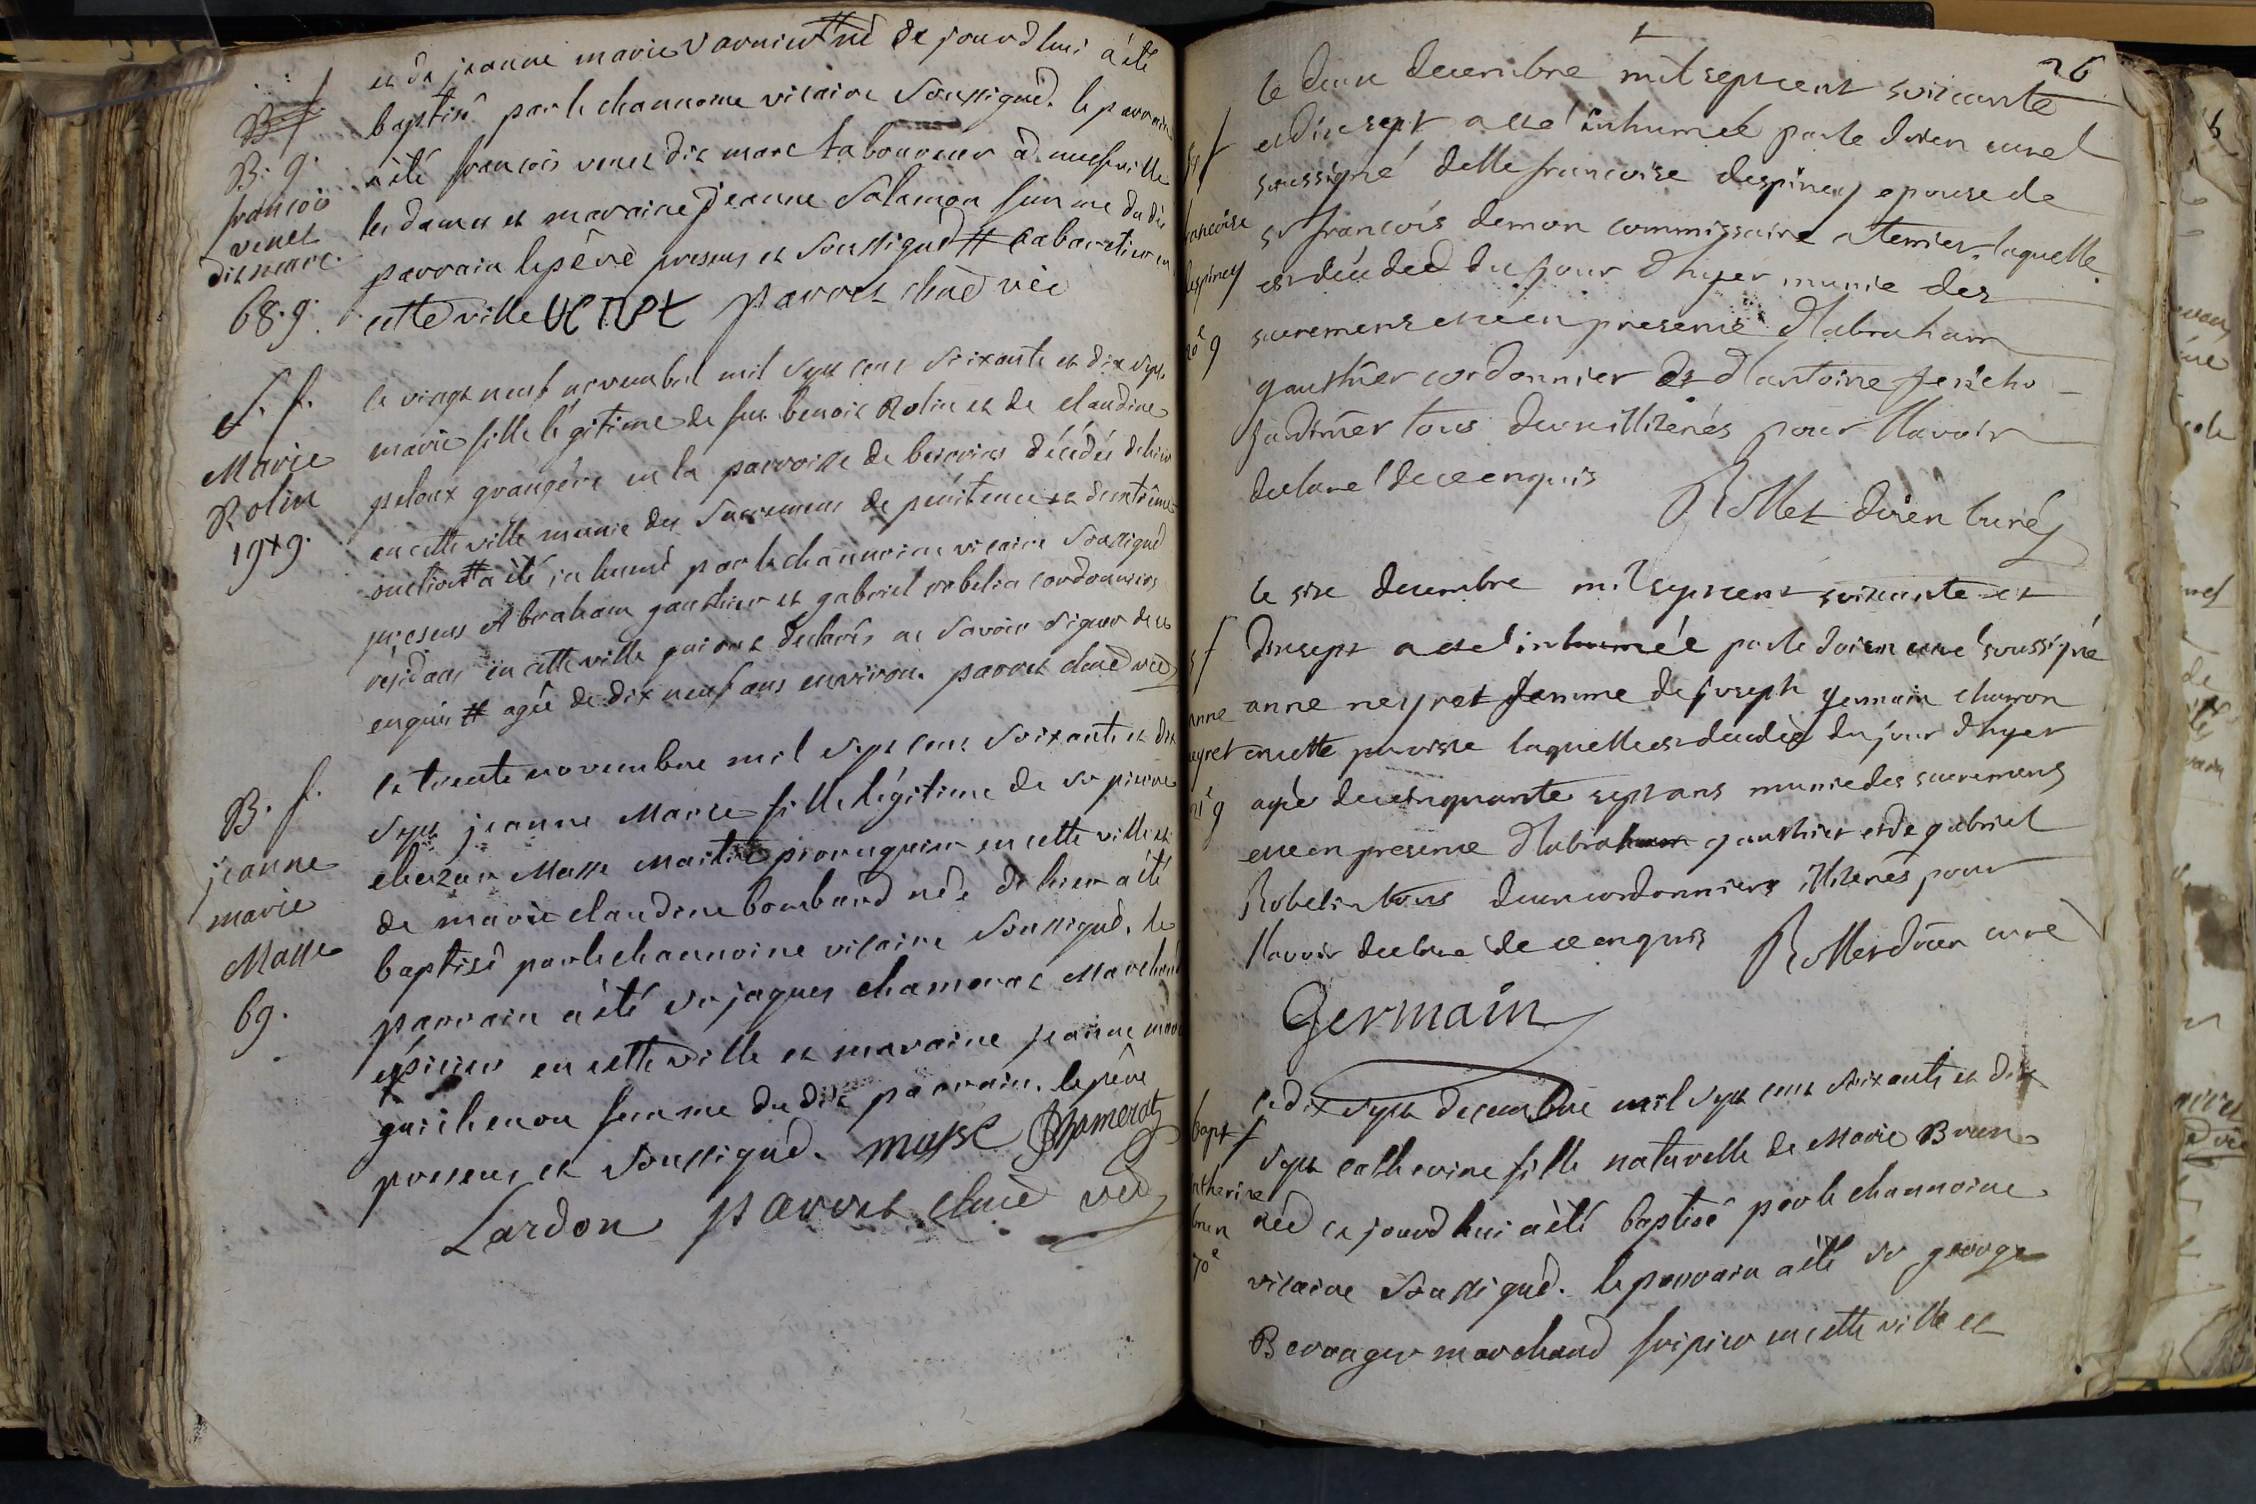 B. f
B. g.
francois
venet
dit marc.
68. g.
et de jeanne marie varnier # né de jourd hui a été
baptisé par le channoine vicaire Soussigné. le parrain
a été francois venet dit marc laboureur à neufville
les dames et maraine jeanne Salamon femme du dit
parrain le père presens et Soussigné # cabaretier en
cette ville VENET parret chne vic
S. f.
Marie
Rolin
19 + 9.
le vingt neuf novembre mil Sept cens Soixante et dix Sept
marie fille légitime de feu benoit Rolin et de claudine
peloux grangère en la parroisse de décédée d'hier
en cette ville munie des Sacremens de pénitence et d'extrême
onction # a été inhumé par le channoine vicaire Soussigné
presens Abraham gauthier et gabriel robelin cordonniers
résidans en cette ville qui ont declarés ne Savoir Signer de ce
enquis # agée de dix neuf ans environ. parret chne vic
B. f.
jeanne
marie
Masse
69.
le trente novembre mil Sept cens Soixante et dix
Sept jeanne Marie fille légitime de Sr pierre
Masse Maitre péruquier en cette ville et
de marie claudine bombard née de hier a été
baptisé par le channoine vicaire Soussigné. le
parrain a été Sr jaques chamerat Marchand
épicier en cette ville et maraine jeanne marie
guichenon femme du dit parrain. le père
presens et Soussigné. masse Chamerat
Lardon parret chne vic
26
le deux decembre mil sept cent soixcante
et dix sept a eté inhumée par le doien curé
soussigné delle francoise despiney epouse de
sr francois demon commissaire a terrier, laquelle
est décédeé du jour d'hyer munie des
sacremens et ce en presence d'abraham
gauthier cordonnier et d'antoine jericho
jardinier tous deux illiterés pour l'avoir
declaré de ce enquis Rollet doien curé
f
rancoise
despiney
20e g
le sixe decembre mil sept cent soixcante et
dixsept a eté inhumée par le doien curé soussigné
anne neyret femme de joseph germain charron
en cette paroisse laquelle est decedeé du jour d'hyer
agée de cinquante sept ans munie des sacremens
et ce en presence d'abraham gauthier et de gabriel
Robelin tous deux cordonniers illiterés pour
l'avoir declaré de ce enquis Rollet doien curé
Germain
s f
anne
neyret
21e g
le dix Sept decembre mil Sept cens Soixante et dix
Sept catherine fille naturelle de Marie Brun
née ce jourd hui a été baptisé par le channoine
vicaire Soussigné. le parrain a été Sr george
Beranger marchand fripier en cette ville et
bapt f
catherine
brun
70e